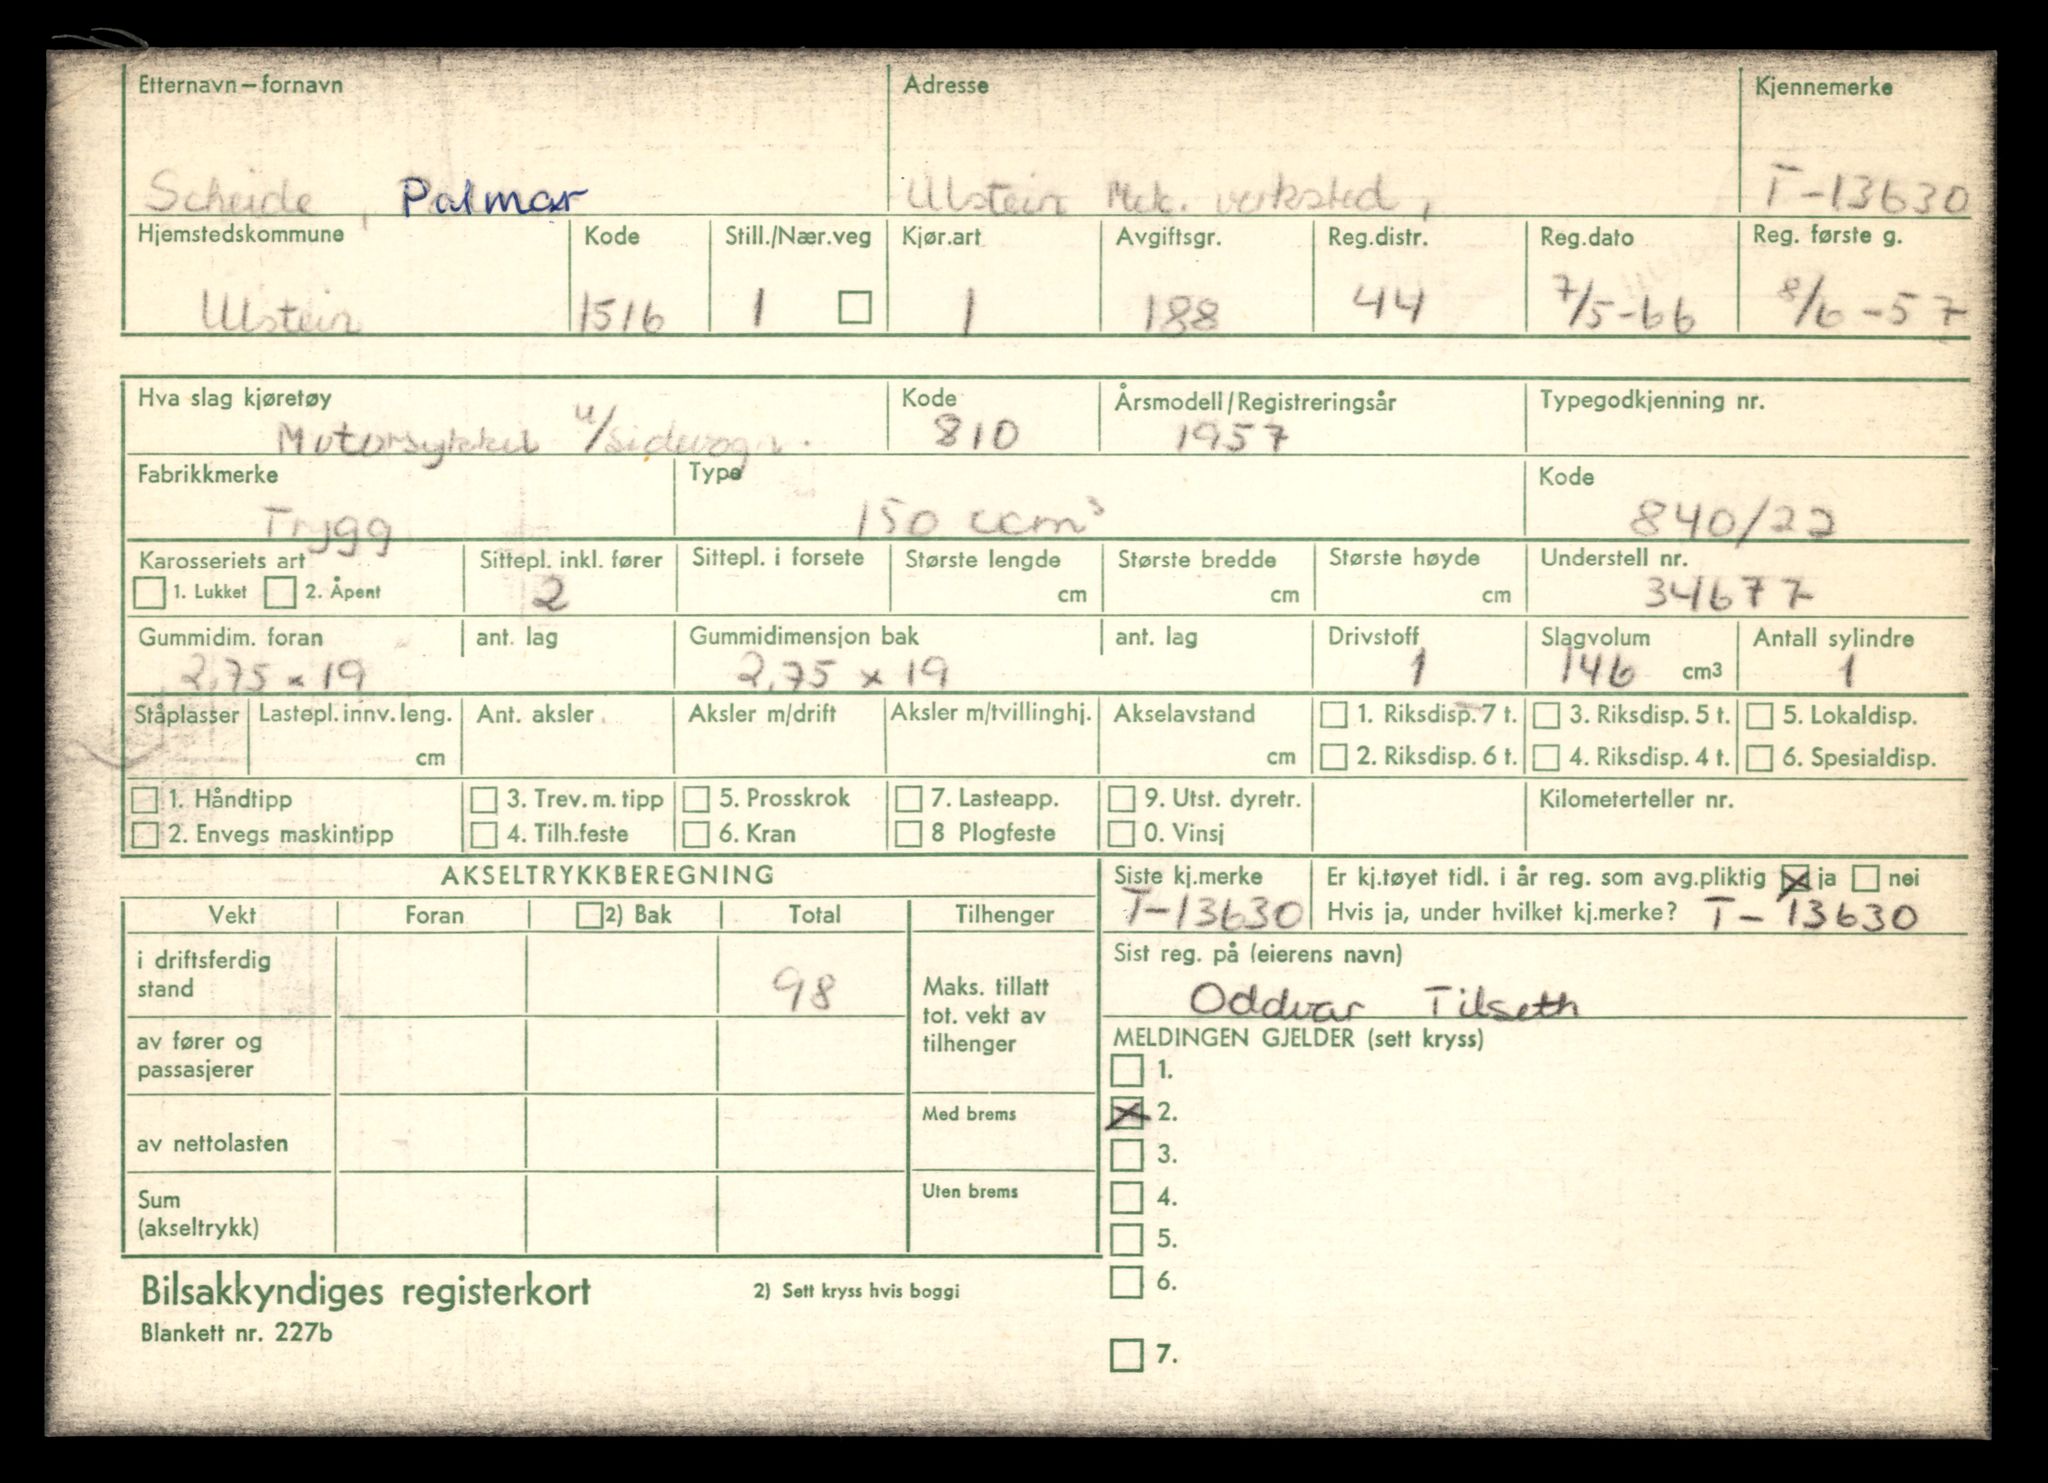 Etternavn – fornavn Adresse Kjennemerke
Scheide, Palmar Ulstein Mek. verksted, T-13630
Hjemstedskommune Kode Still./Nær.veg Kjør.art Avgiftsgr. Reg.distr. Reg.dato Reg. første g.
Ulstein 1516 1 1 188 44 7/5-66 8/6-57
Hva slag kjøretøy Kode Årsmodell/Registreringsår Typegodkjenning nr.
Motorsykkel u/sidevogn. 810 1957
Fabrikkmerke Type Kode
Trygg 150 ccm³ 840/22
Karosseriets art Sittepl. inkl. fører Sittepl. i forsete Største lengde Største bredde Største høyde Understell nr.
1. Lukket 2. Åpent 2 cm cm cm 34677
Gummidim. foran ant. lag Gummidimensjon bak ant. lag Drivstoff Slagvolum Antall sylindre
2,75 x 19 2,75 x 19 1 146 cm3 1
Ståplasser Lastepl. innv. leng. Ant. aksler Aksler m/drift Aksler m/tvillinghj. Akselavstand 1. Riksdisp. 7 t. 3. Riksdisp. 5 t. 5. Lokaldisp.
cm cm 2. Riksdisp. 6 t. 4. Riksdisp. 4 t. 6. Spesialdisp.
1. Håndtipp 3. Trev. m. tipp 5. Prosskrok 7. Lasteapp. 9. Utst. dyretr. Kilometerteller nr.
2. Envegs maskintipp 4. Tilh.feste 6. Kran 8 Plogfeste 0. Vinsj
AKSELTRYKKBEREGNING Siste kj.merke Er kj.tøyet tidl. i år reg. som avg.pliktig ja nei
Vekt Foran 2) Bak Total Tilhenger T-13630 Hvis ja, under hvilket kj.merke? T-13630
i driftsferdig
stand 98
Maks. tillatt
tot. vekt av
tilhenger
Sist reg. på (eierens navn)
Oddvar Tilseth
av fører og
passasjerer
MELDINGEN GJELDER (sett kryss)
1.
Med brems 2.
av nettolasten 3.
Uten brems 4.
Sum
(akseltrykk) 5.
Bilsakkyndiges registerkort 2) Sett kryss hvis boggi 6.
Blankett nr. 227b 7.